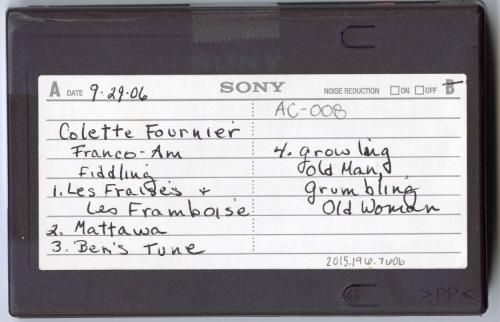 A DATE 9-29-06 SONY NOISE REDUCTION ON OFF B
AC-008
Colette Fournier
Franco-Am
Fiddling
1. Les Fraises +
Les Framboise
2. Mattawa
3. Ben's Tune
4. growling
old Man,
grumbling
Old Woman
2015.196.7006
>PP<